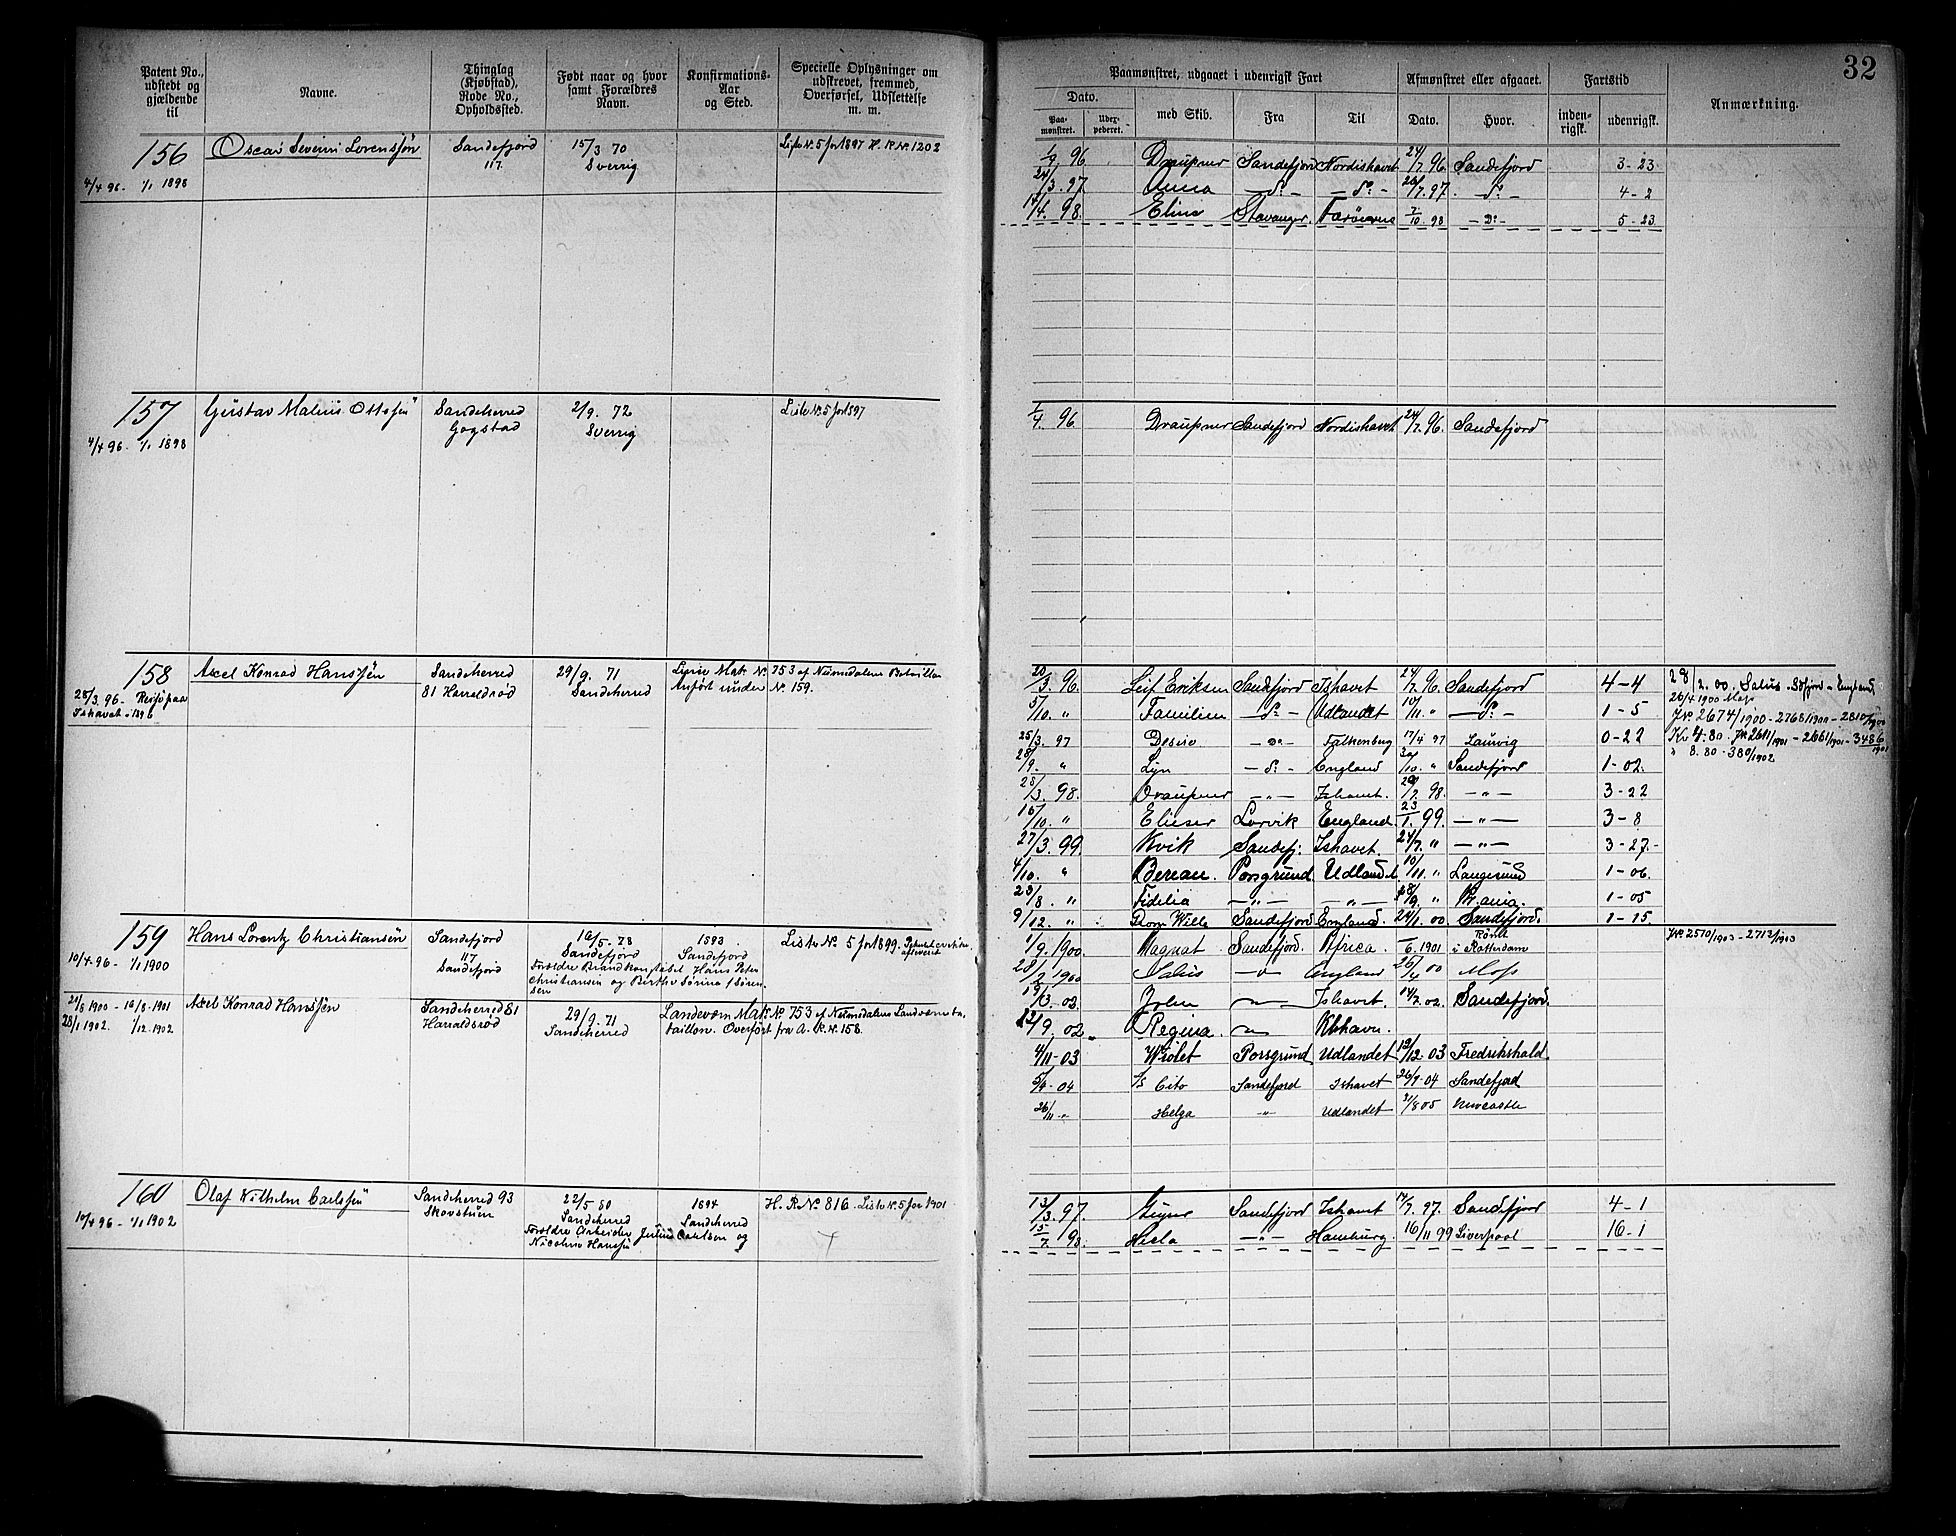 32
Patent No., udstedt og gjældende til
Navne.
Thinglag (Kjøbstad), Rode No., Opholdssted.
Født naar og hvor samt Forældres Navn.
Konfirmations- Aar og Sted.
Specielle Oplysninger om udstrevet, fremmed, Overførsel, Udslettelse m. m.
Paamønstret, udgaaet i udenrigsk Fart
Afmønstret eller afgaaet.
Fartstid
Anmærkning.
Dato.
Paa- mønstret.
Uder- pederet.
med Skib.
Fra
Til
Dato.
Hvor.
inden- rigsk.
udenrigsk.
156 Oscar Severin Lorenssøn Sandefjord 15/3 70 Liste N. 5 for 1897 H. R N. 1202
117. Sverrig
4/4 96. 1/1 1898
96. Draupner Sandefjord Nordishavet 24/7. 96. Sandefjord 3-23
24/3. 97. Anna — do — — do — 97. — do — 4-2
14/4. 98. Elina Stavanger. Farøerne 7/10. 98 — Do — 5-23
157 Gustav Malius Ottosen Sandeherred 2/9. 72 Liste N. 5 for 1897
Gogstad Sverrig
4/4 96. 1/1 1898
1/4. 96. Draupner Sandefjord Nordishavet 24/7. 96. Sandefjord
158 Axel Konrad Hanssøn Sandeherred 29/9. 71 Linie Mat. N. 753 af Numedalens Bataillon
81 Haraldsrød Sandeherred Anført under N. 159.
28/3. 96. Reise paa
Ishavet - 1896
20/3. 96. Leif Eriksen Sandefjord Ishavet 24/7. 96. Sandefjord 4-4
5/10. " Familien — do — Udlandet 10/11. " — do — 1-5
25/3. 97 Desire — Do — Falkenberg 17/4 97 Laurvig 0-22
28/9. " Lyn — do — England 30/10. " Sandefjord 1-02.
28/3. 98. Draupner — " — Ishavet. 29/7. 98. — " — 3-22
16/10. " Elieser Larvik England. 23/1. 99. — " — 3-8
27/3. 99. Kvik Sandefj. Ishavet. 24/7. " — " — 3-27-
4/10. " Bereau. Porsgrund Udlandet 10/11. " Langesund 1-06.
23/8. " Fidelia — " — — " — 28/9. " 1-05
9/12. " Sandefjord England. 24/1. 00. Sandefjord. 1-15
28/2. 00. Salus. Sdfjord - England,
26/4 1900 Moss
JN. 2674/1900 - 2768/1900 - 2810/1900
Kr 4.80. JN 2611/1901 - 2661/1901 - 3486/1901
" 8.80 - 380/1902
159 Hans Lorentz Christiansen Sandefjord 16/5. 78 1893. Liste N. 5 for 1899.
117 Sandefjord Sandefjord
10/4 96. - 1/1 1900 Sandefjord Forældre Brandkonstabel Hans Peter
Christiansen og Berthe Sørine Søren-
sen
21/8 1900 - 16/8. 1901 Axel Konrad Hanssøn Sandeherred 81 29/9. 71 Landeværn Mat. N. 753 af Numedalens Landværnba-
28/1 1902. 1/12. 1902 Haraldsrød Sandeherred taillon. Overført fra A. R. N. 158.
1/9. 1900. Magnat Sandefjord. Africa. 1/6. 1901 Rømt i Rotterdam
JN. 2570/1903 - 2712/1903
28/2 1900 Salus England 26/4 00 Moss
19/3. 02 Jolen Ishavet. 14/7. 02. Sandefjord.
12/9. 02 " Regina. Kbhavn.
4/11-03 Wiolet Porsgrund Udlandet 12/12. 03 Fredrikshald
5/4 - 04 S/S Cito Sandefjord Ishavet 26/9-04 Sandefjord
26/11 " Helga " Udlandet 31/8 05 Newcastle
160 Olaf Vilhelm Carlssen Sandeherred 93 22/5 80 1894 H. R N. 816. Liste N. 5 for 1901
Skovstuen Sandeherred Sandeherred
10/4 96 - 1/1 1902 Forældre Arbeider Julius Carlsen og
Nicoline Hansen
13/3. 97. Gujner Sandefjord Ishavet 17/7. 97. Sandefjord 4-1
15/7. 98. Hecla — " — Hamburg. 16/11 99 Liverpool 16-1